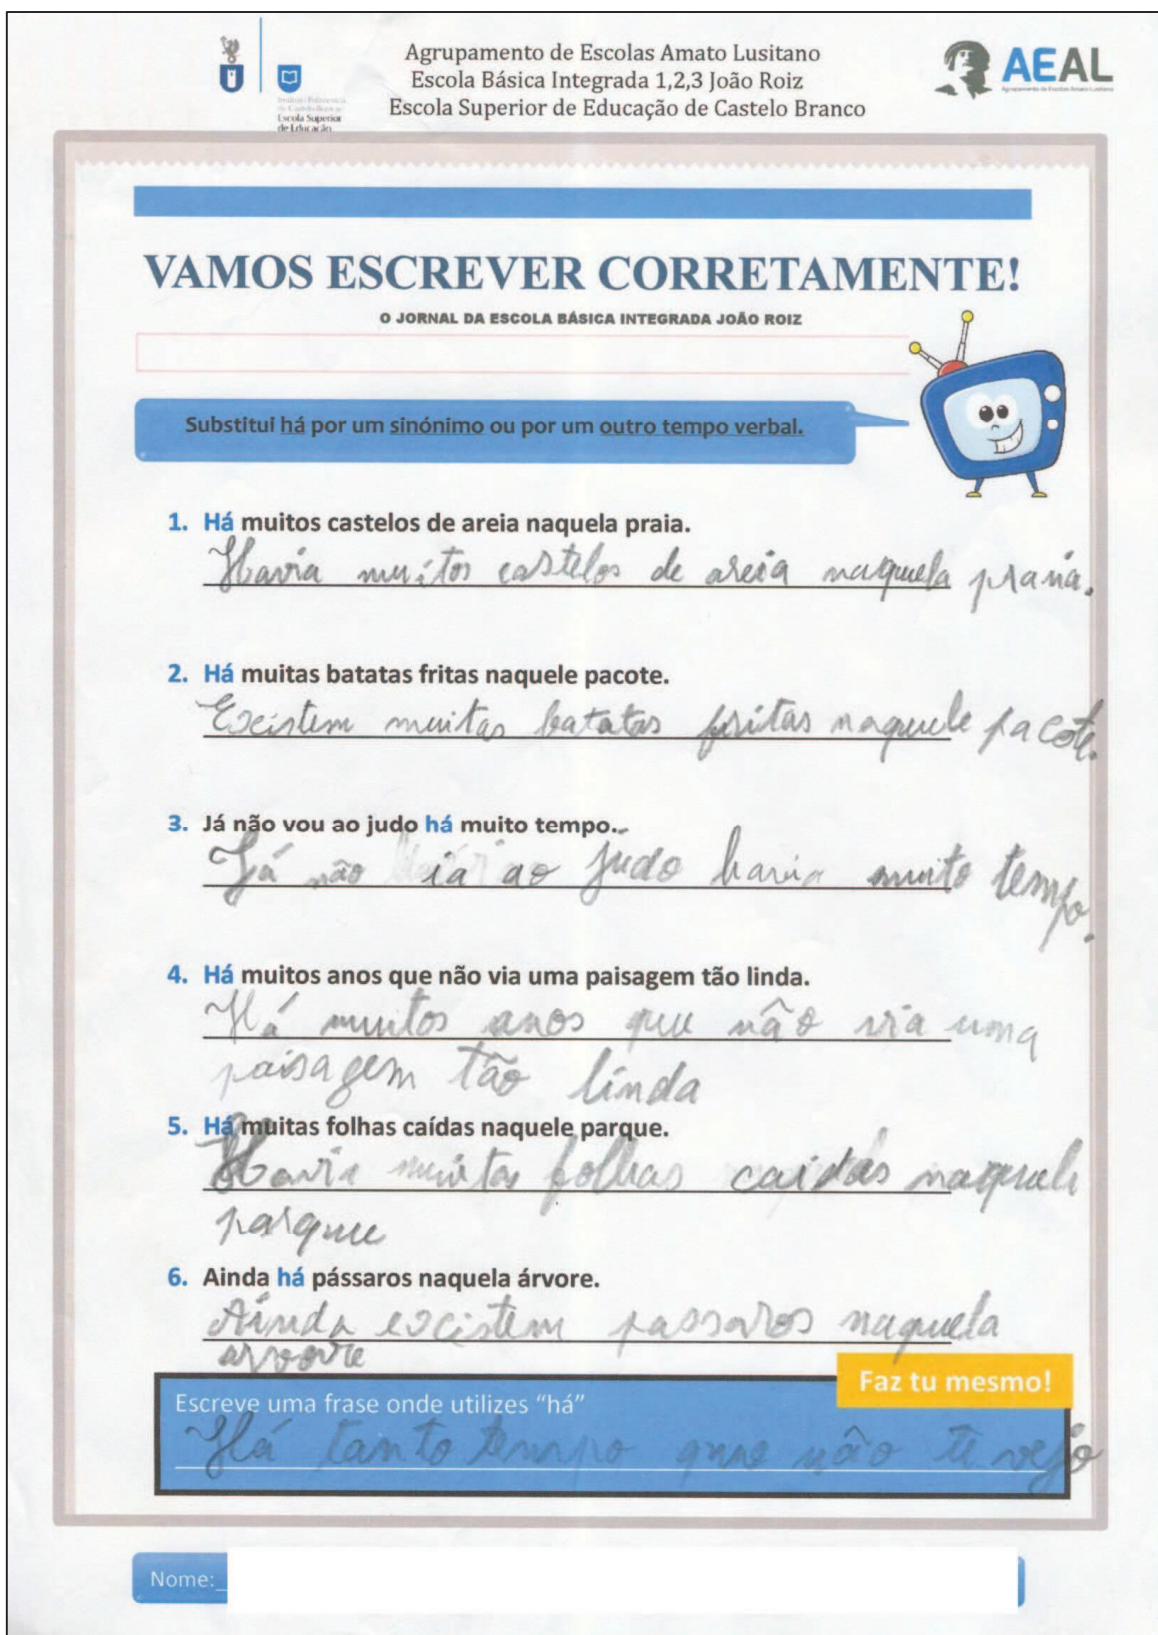 Agrupamento de Escolas Amato Lusitano
Escola Básica Integrada 1,2,3 João Roiz
Escola Superior de Educação de Castelo Branco
Instituto Politécnico
de Castelo Branco
Escola Superior
de Educação
AEAL
Agrupamento de Escolas Amato Lusitano
VAMOS ESCREVER CORRETAMENTE!
O JORNAL DA ESCOLA BÁSICA INTEGRADA JOÃO ROIZ
Substitui há por um sinónimo ou por um outro tempo verbal.
1. Há muitos castelos de areia naquela praia.
Havia muitos castelos de areia naquela praia.
2. Há muitas batatas fritas naquele pacote.
Existem muitas batatas fritas naquele pacote.
3. Já não vou ao judo há muito tempo.
Já não ia ao judo havia muito tempo.
4. Há muitos anos que não via uma paisagem tão linda.
Há muitos anos que não via uma
paisagem tão linda
5. Há muitas folhas caídas naquele parque.
Havia muitas folhas caidas naquele
parque
6. Ainda há pássaros naquela árvore.
Ainda existem passaros naquela
arvovre
Faz tu mesmo!
Escreve uma frase onde utilizes “há”
Há tanto tempo que não te vejo
Nome:_